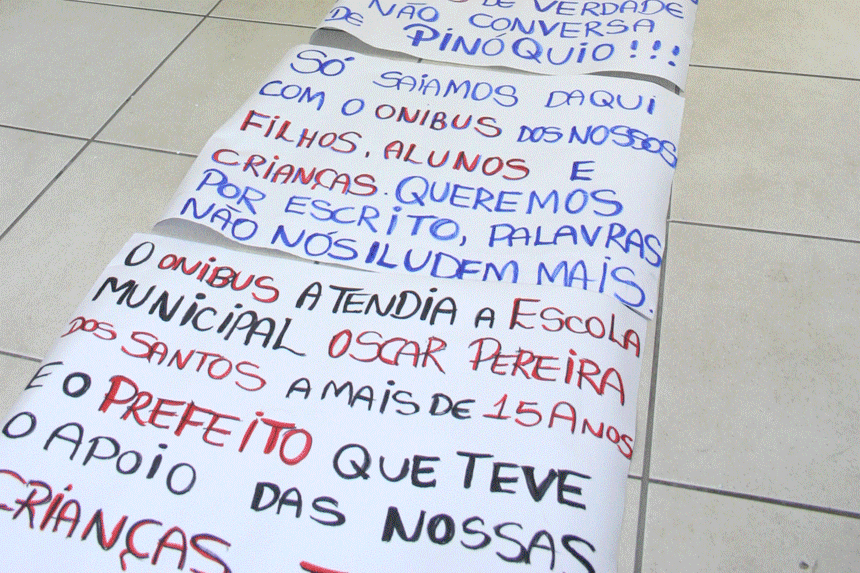 DE VERDADE
NÃO CONVERSA
DE PINÓQUIO!!!
SÓ SAIAMOS DAQUI
COM O ONIBUS DOS NOSSOS
FILHOS, ALUNOS E
CRIANÇAS. QUEREMOS
POR ESCRITO, PALAVRAS
NÃO NÓS ILUDEM MAIS.
O ONIBUS ATENDIA A ESCOLA
MUNICIPAL OSCAR PEREIRA
DOS SANTOS A MAIS DE 15 ANOS
E O PREFEITO QUE TEVE
O APOIO DAS NOSSAS
CRIANÇAS